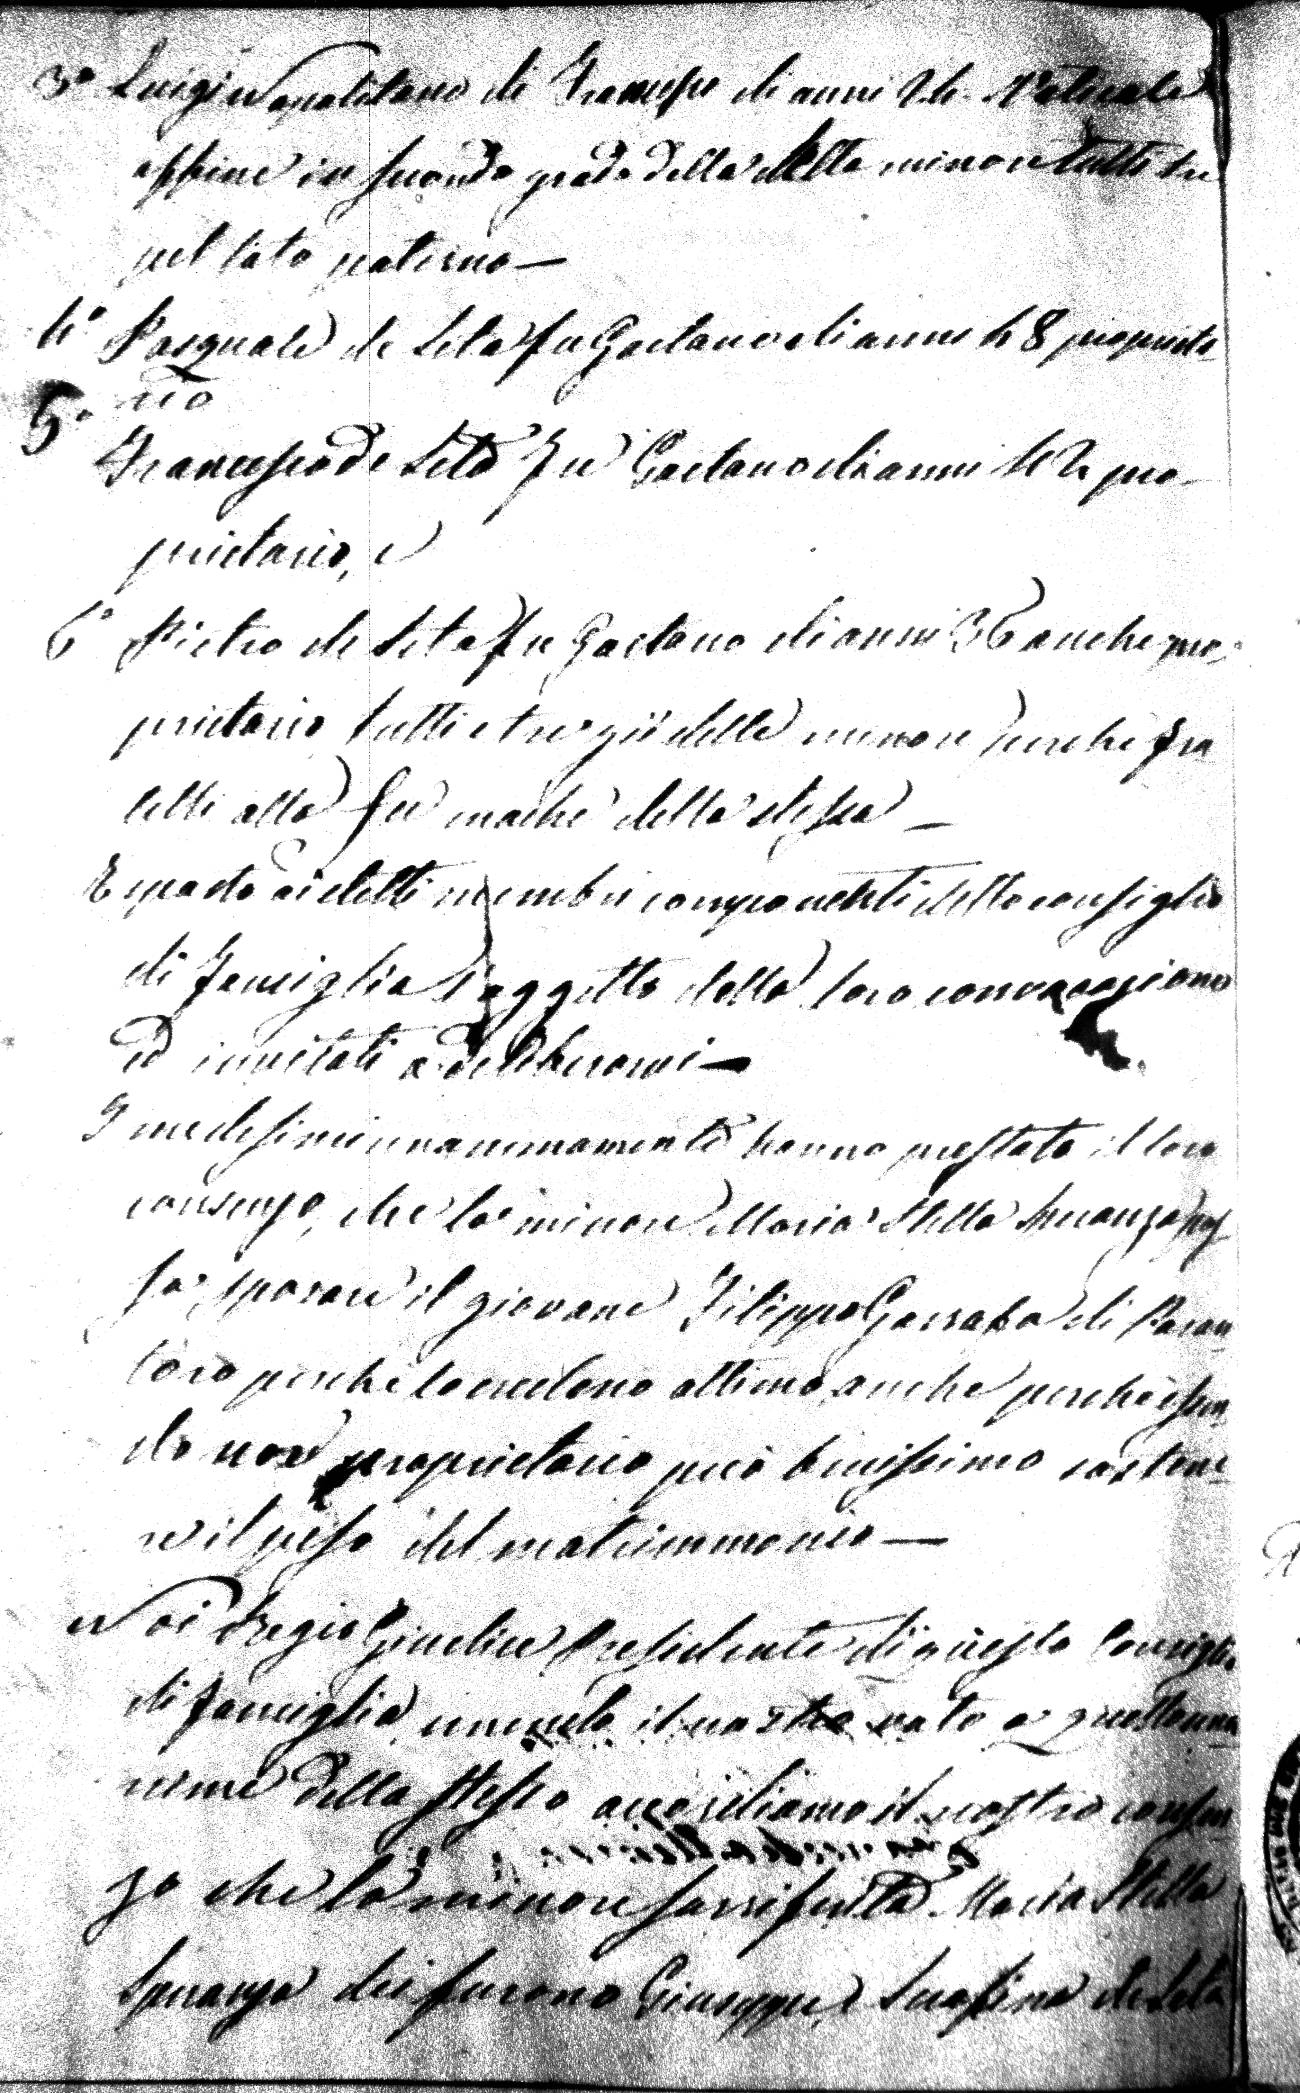 3º Luigi Napolitano di Francesco di anni
affine in secondo grado della detta minore tutti tre
pel lato paterno —
4º Pasquale de Seta fu Gaetano di anni 48 proprieta
rio
5º Francesco de Seta fu Gaetano di anni 42 pro-
prietario, e
6º Pietro de Seta fu Gaetano di anni 36 anche pro-
prietario tutti e tre zii della minore perche fra
telli alla fu madre della stessa —
Esposto ai detti membri componenti detto consiglio
di famiglia l'oggetto della loro convocazione
ed invitati a deliberarvi —
I medesimi unanimamente hanno prestato il loro
consenso, che la minore Maria Stella Speranza pos-
sa sposare il giovane Filippo Garrafa di
perche lo credono ottimo, anche perche essen
do proprietario può benissimo sostene
re il peso del matrimonio —
Noi Regio Giudice Presidente di questo Consiglio
di famiglia, unendo il nostro voto a quello una
nime dello stesso accordiamo il nostro consen
zo che la minore Maria Stella
Speranza dei furono Giuseppe, e Serafina de Seta